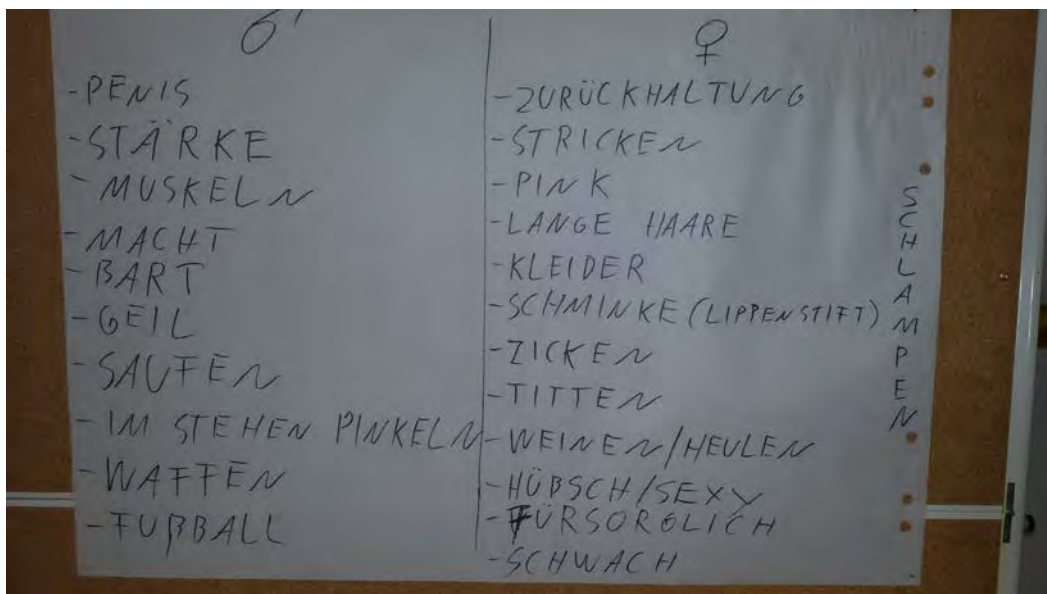 ♂ ♀
-PENIS
-STÄRKE
-MUSKELN
-MACHT
-BART
-GEIL
-SAUFEN
-IM STEHEN PINKELN
-WAFFEN
-FUßBALL
-ZURÜCKHALTUNG
-STRICKEN
-PINK
-LANGE HAARE
-KLEIDER
-SCHMINKE (LIPPENSTIFT)
-ZICKEN
-TITTEN
-WEINEN/HEULEN
-HÜBSCH/SEXY
-FÜRSORGLICH
-SCHWACH
SCHLAMPEN